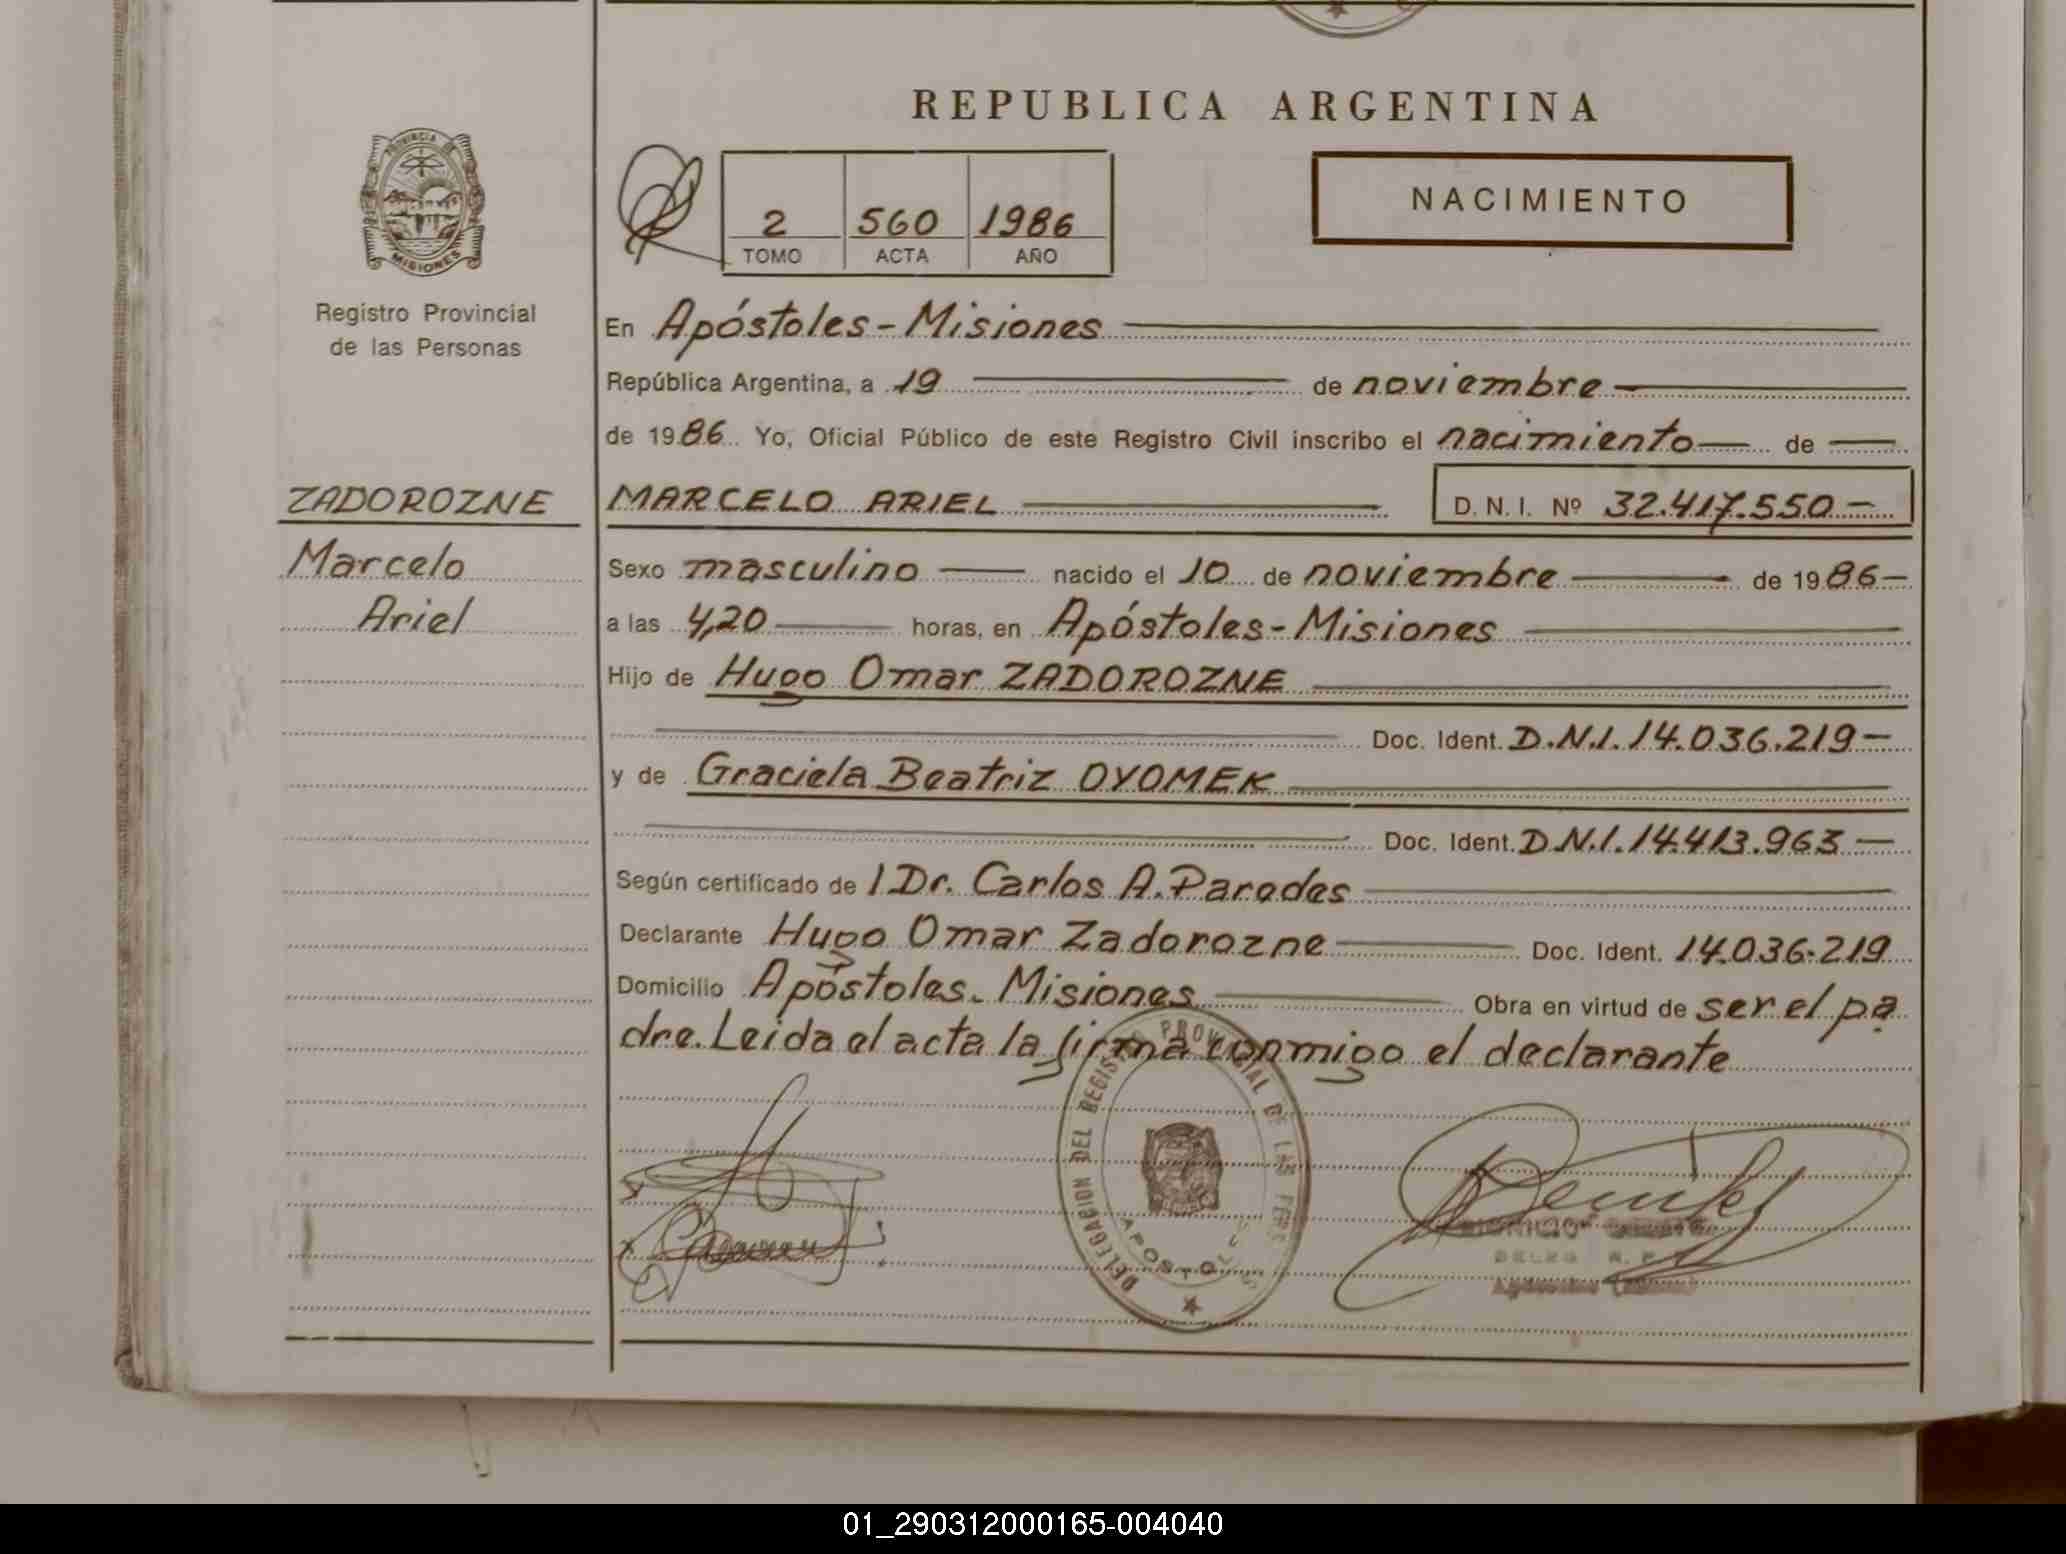 REPUBLICA ARGENTINA
PROVINCIA DE
MISIONES
Registro Provincial
de las Personas
2 560 1986
TOMO ACTA AÑO
NACIMIENTO
En Apóstoles - Misiones
República Argentina, a 19 de noviembre
de 1986 Yo, Oficial Público de este Registro Civil inscribo el nacimiento de
ZADOROZNE
Marcelo
Ariel
MARCELO ARIEL D. N. I. Nº 32.417.550-
Sexo masculino nacido el 10 de noviembre de 1986-
a las 4,20 horas, en Apóstoles - Misiones
Hijo de Hugo Omar ZADOROZNE
Doc. Ident. D.N.I. 14.036.219-
y de Graciela Beatriz OYOMEK
Doc. Ident. D.N.I. 14.413.963-
Según certificado de l Dr. Carlos A. Paredes
Declarante Hugo Omar Zadorozne Doc. Ident. 14.036.219
Domicilio Apóstoles. Misiones Obra en virtud de ser el pa
dre. Leida el acta la firma conmigo el declarante
DELEGACION DEL REGISTRO PROVINCIAL DE LAS PERS
APOSTOLES
01_290312000165-004040